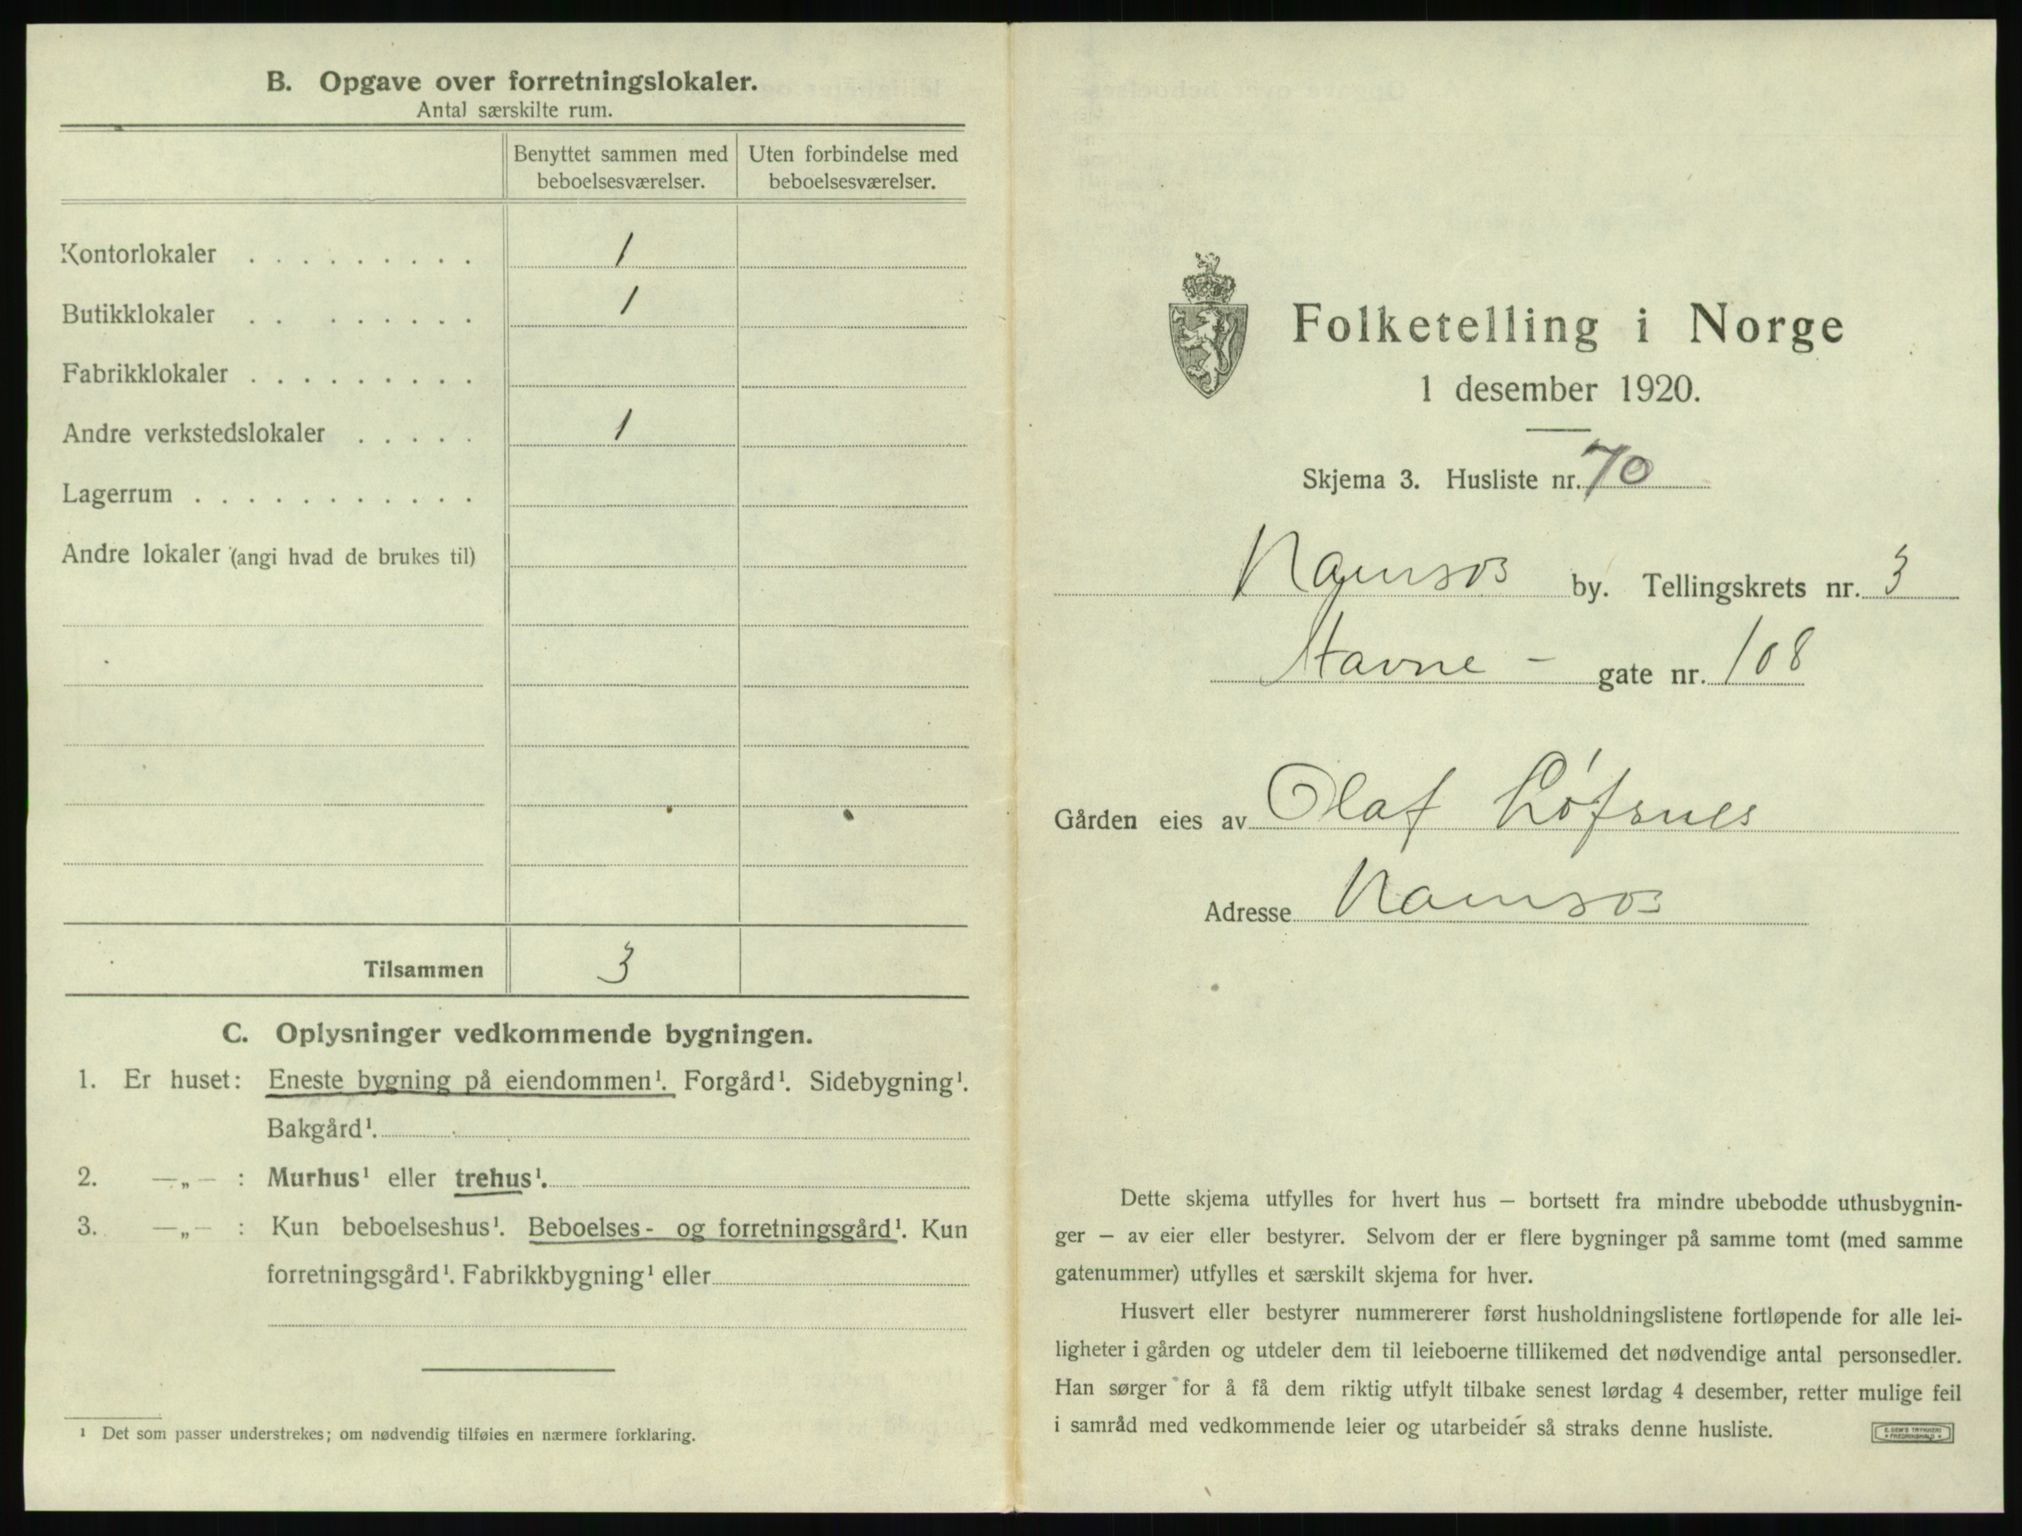 B. Opgave over forretningslokaler.
Antal særskilte rum.
Benyttet sammen med beboelsesværelser.
Uten forbindelse med beboelsesværelser.
Kontorlokaler . . . . . . . . . 1
Butikklokaler . . . . . . . . 1
Fabrikklokaler . . . . . . . . .
Andre verkstedslokaler . . . . . 1
Lagerrum . . . . . . . . . . .
Andre lokaler (angi hvad de brukes til)
Tilsammen 3
C. Oplysninger vedkommende bygningen.
1. Er huset: Eneste bygning på eiendommen¹. Forgård¹. Sidebygning¹.
Bakgård¹.
2. —„— : Murhus¹ eller trehus¹.
3. —„— : Kun beboelseshus¹. Beboelses- og forretningsgård¹. Kun
forretningsgård¹. Fabrikkbygning¹ eller
¹ Det som passer understrekes; om nødvendig tilføies en nærmere forklaring.
Folketelling i Norge
1 desember 1920.
Skjema 3. Husliste nr. 70
Namsos by. Tellingskrets nr. 3
Havne- gate nr. 108
Gården eies av Olaf Löfsnes
Adresse Namsos
Dette skjema utfylles for hvert hus — bortsett fra mindre ubebodde uthusbygnin-
ger — av eier eller bestyrer. Selvom der er flere bygninger på samme tomt (med samme
gatenummer) utfylles et særskilt skjema for hver.
Husvert eller bestyrer nummererer først husholdningslistene fortløpende for alle lei-
ligheter i gården og utdeler dem til leieboerne tillikemed det nødvendige antal personsedler.
Han sørger for å få dem riktig utfylt tilbake senest lørdag 4 desember, retter mulige feil
i samråd med vedkommende leier og utarbeider så straks denne husliste.
E. SEM'S TRYKKERI
FREDRIKSHALD